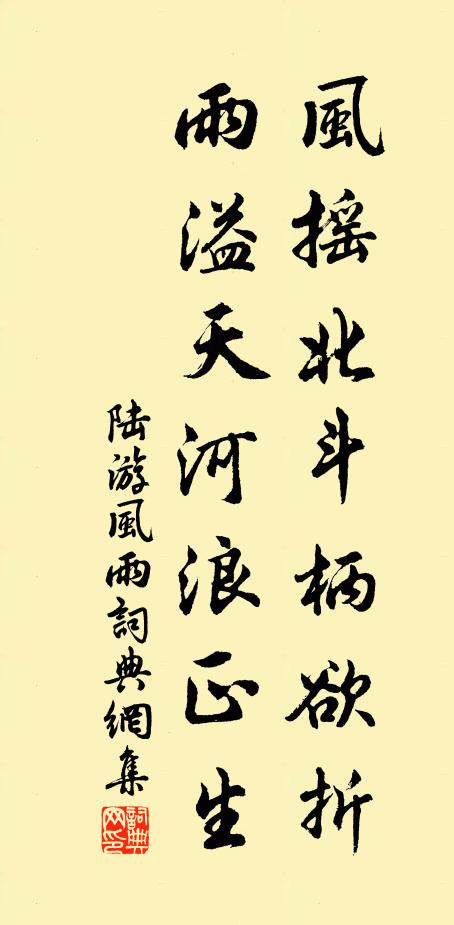 風摇北斗柄欲折
雨溢天河浪正生
陆游風雨詞典網集
詞典网印